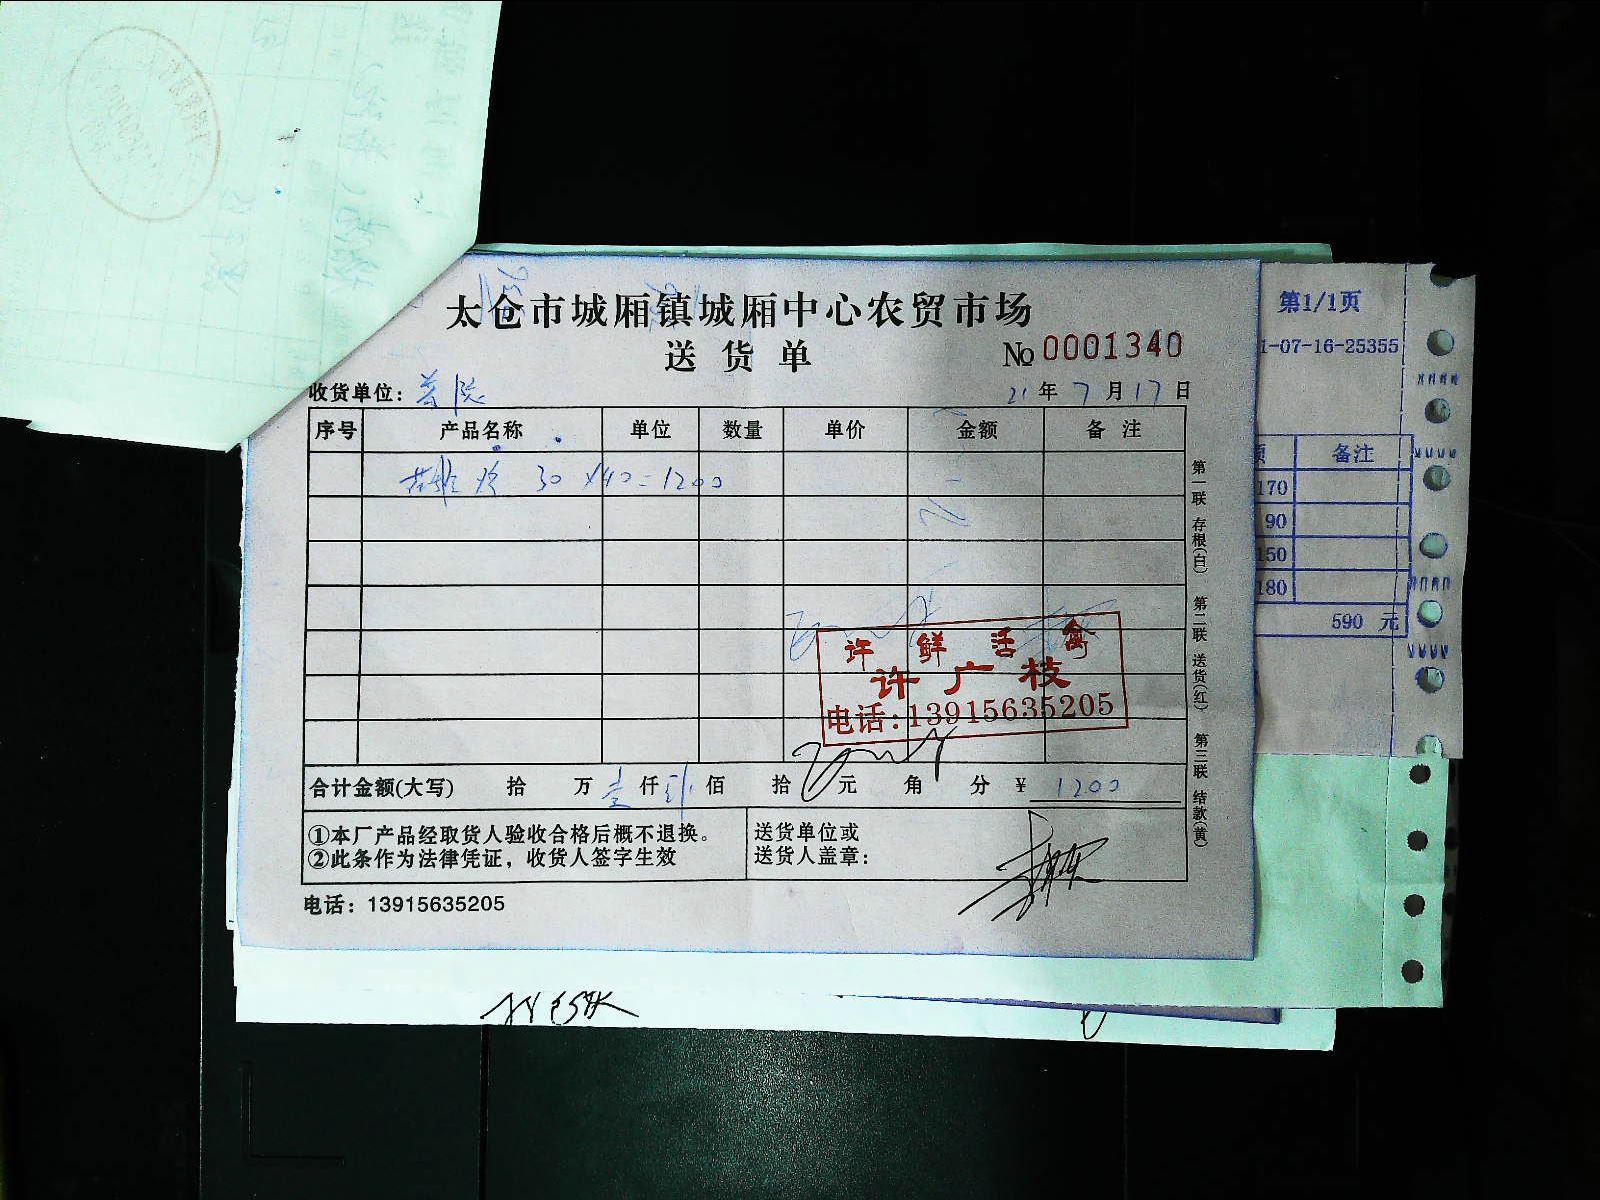 太仓市城厢镇城厢中心农贸市场
送货单
No 0001340
收货单位:
21年7月17日
序号 产品名称 单位 数量 单价 金额 备注
30 X40=1200
许鲜活禽
许广枝
电话:13915635205
合计金额(大写) 拾 万 壹仟 佰 拾 元 角 分 ¥ 1200
①本厂产品经取货人验收合格后概不退换。
②此条作为法律凭证，收货人签字生效
送货单位或
送货人盖章:
电话: 13915635205
第一联 存根(白) 第二联 送货(红) 第三联 结款(黄)
第1/1页
1-07-16-25355
备注
170
90
150
180
590 元